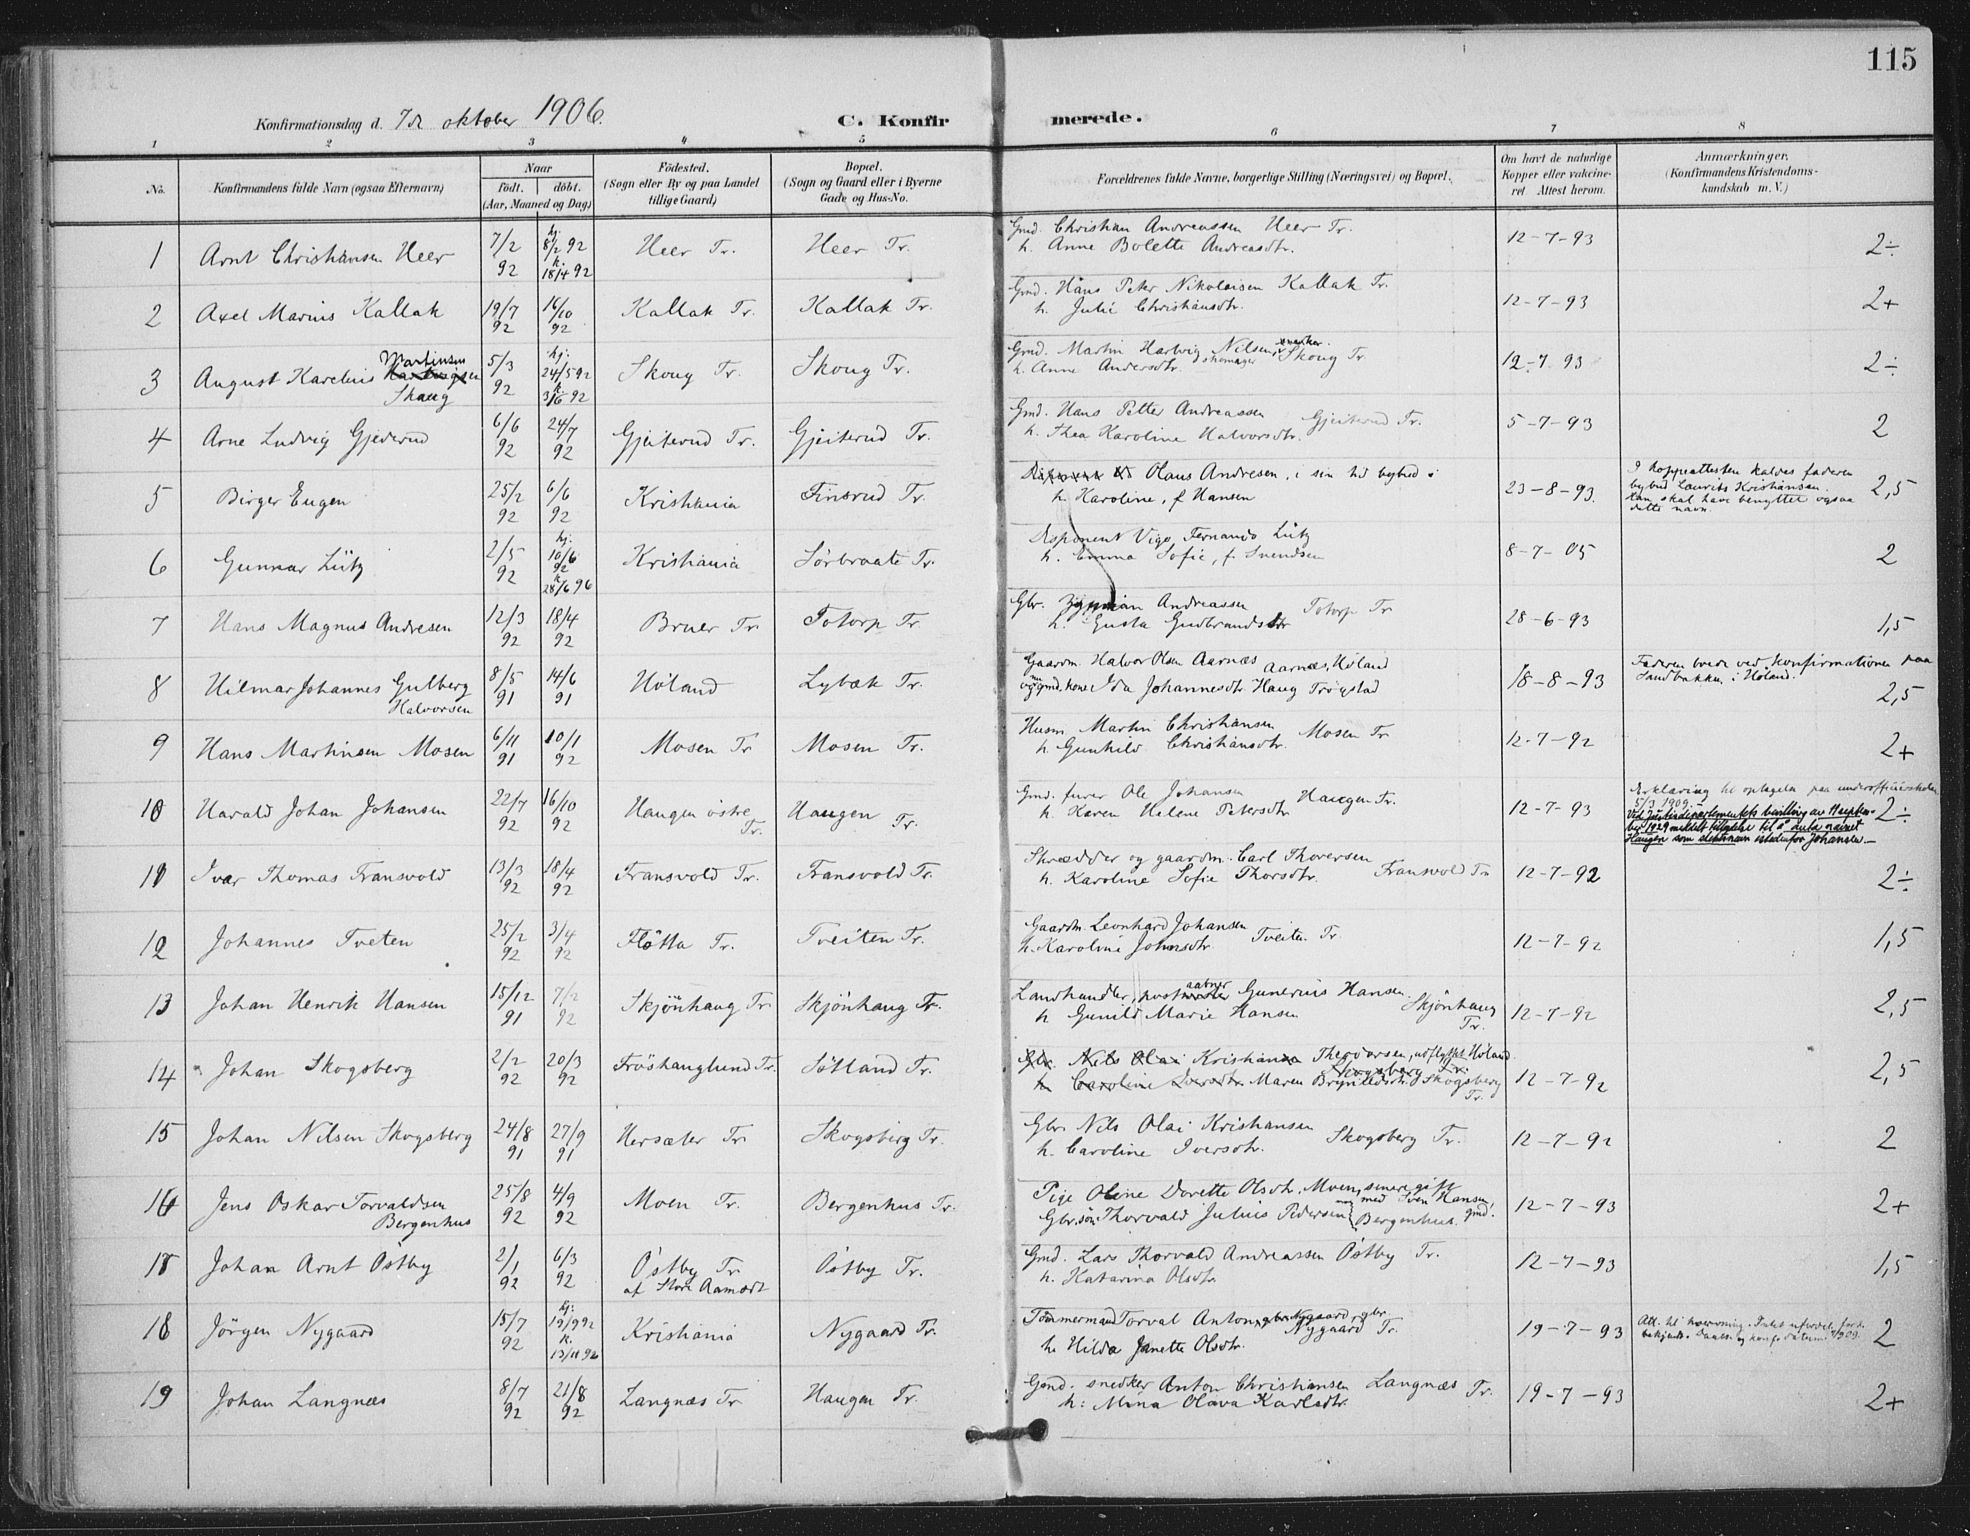 115
Konfirmationsdag d. 7de oktober 1906.
C. Konfirmerede.
1 2 3 4 5 6 7 8
No.
Konfirmandens fulde Navn (ogsaa Efternavn)
Naar
födt. döbt.
(Aar, Maaned og Dag)
Födested.
(Sogn eller By og paa Landet
tillige Gaard)
Bopæl.
(Sogn og Gaard eller i Byerne
Gade og Hus-No.
Forældrenes fulde Navne, borgerlige Stilling (Næringsvei) og Bopæl.
Om havt de naturlige
Kopper eller vakcine-
ret Attest herom.
Anmærkninger.
(Konfirmandens Kristendoms-
kundskab m. V.)
1 Arnt Christiansen Heer 7/2 92 hj. 8/2 92 k. 18/4 92 Heer Tr. Heer Tr.
Gmd. Christian Andreassen Heer Tr.
h. Anne Bolette Andreasdtr. 12-7-93 2÷
2 Axel Marius Kallak 19/7 92 16/10 92 Kallak Tr. Kallak Tr.
Gmd. Hans Peter Nikolaisen Kallak Tr.
h. Julie Christiansdtr. 12-7-93 2+
3 August Karelius Martinsen Skaug 5/3 92 hj. 24/5 92 k. 3/6 92 Skoug Tr. Skoug Tr.
Gmd. Martin Hartvig Nilsen, snekker. Skoug Tr.
h. Anne Andersdtr. skomager 12-7-93 2÷
4 Arne Ludvig Gjederud 6/6 92 24/7 92 Gjeiterud Tr. Gjeiterud Tr.
Gmd. Hans Petter Andreassen Gjeiterud Tr.
h. Thea Karoline Halvorsdtr. 5-7-93 2
5 Birger Eugen 25/2 92 6/6 92 Kristiania Finsrud Tr.
Olaus Andresen, i sin tid bybud i
h. Karoline, f. Hansen 23-8-93.
I koppeattesten kaldes faderen
bybud Laurits Kristiansen.
Han skal have benyttet ogsaa
dette navn. 2,5
6 Gunnar Lütz 2/5 92 hj. 10/6 92 k. 28/6 96 Kristiania Sörbraate Tr.
Disponent Vigo Fernando Lütz
h. Emma Sofie, f. Svendsen 8-7-05 2
7 Hans Magnus Andresen 12/3 92 18/4 92 Bruer Tr. Totorp Tr.
Gbr. Andreassen Totorp Tr
h. Gusta Gudbrandsdtr 28-6-93 1,5
8 Hilmar Johannes Gulberg Halvorsen 8/5 91 14/6 91 Höland Lybæk Tr.
Gaardm. Halvor Olsen Aarnæs Aarnæs, Höland
og gmd. kone Ida Johannesdtr. Haug Trøgstad 18-8-93
Faderen boede ved konfirmationen paa
Sandbakken i Höland. 2,5
9 Hans Martinsen Mosen 6/11 91 10/1 92 Mosen Tr Mosen Tr.
Husm. Martin Christiansen
h. Gunhild Christiansdtr. Mosen Tr 12-7-92 2+
10 Harald Johan Johansen 22/7 92 16/10 92 Haugen östre Tr. Haugen Tr.
Gmd. furer Ole Johansen
h. Karen Helene Petersdtr. Haugen Tr. 12-7-93
Erklæring til optagelse paa underofficerskolen
5/3 1909.
Ved Justisdepartementets bevilling av
1929 meddelt tillatelse til å anta navnet
Haugen som slektsnavn istedenfor Johansen.— 2÷
11 Ivar Thomas Fransvold 13/3 92 18/4 92 Fransvold Tr. Fransvold Tr.
Skrædder og gaardm. Carl Thoversen
h. Karoline Sofie Thorsdtr. Fransvold Tr 12-7-92 2÷
12 Johannes Tveten 25/2 92 3/4 92 Flötta Tr. Tveiten Tr.
Gaardm. Leonhard Johansen
h. Karoline Johnsdtr. Tveiten Tr. 12-7-92 1,5
13 Johan Henrik Hansen 15/12 91 7/2 92 Skjönhaug Tr. Skjönhaug Tr.
Landhandler, postaabner Gunerius Hansen
h Gunild Marie Hansen Skjönhaug Tr. 12-7-92 2,5
14 Johan Skogsberg 2/2 92 20/3 92 Fröshauglund Tr. Sötland Tr.
Gbr. Nils Olai Kristian Theodorsen, udflyttet Höland
h Caroline Iversdtr. Maren Brynildsdtr. Skogsberg Tr. 12-7-92 2,5
15 Johan Nilsen Skogsberg 24/8 91 27/9 91 Hersæter Tr Skogsberg Tr.
Gbr. Nils Olai Kristiansen
h. Caroline Iversdtr. Skogsberg Tr. 12-7-92 2
16 Jens Oskar Torvaldsen Bergenhus 25/8 92 4/9 92 Moen Tr. Bergenhus Tr.
Pige Oline Dorette Olsdtr. Moen, senere gift
med Sven Hansen, gmd.
Gbr.sön Thorvald Julius Pedersen Bergenhus. 12-7-93 2+
17 Johan Arnt Östby 2/1 92 6/3 92 Östby Tr. af Store Aamodt Östby Tr.
Gmd. Lars Thorvald Andreassen Östby Tr.
h. Katarina Olsdtr. 12-7-93 1,5
18 Jörgen Nygaard 15/7 92 hj. 19/9 92 k. 13/11 92 Kristiania Nygaard Tr.
Tömmermand Torval Anton Nygaard, gbr.
Nygaard Tr.
h. Hilda Janette Olsdtr. 19-7-93 2
19 Johan Langnæs 8/7 92 21/8 92 Langnæs Tr. Haugen Tr.
Gmd. snedker Anton Christiansen Langnæs Tr.
h: Mina Olava Karlsdtr. 19-7-93 2+